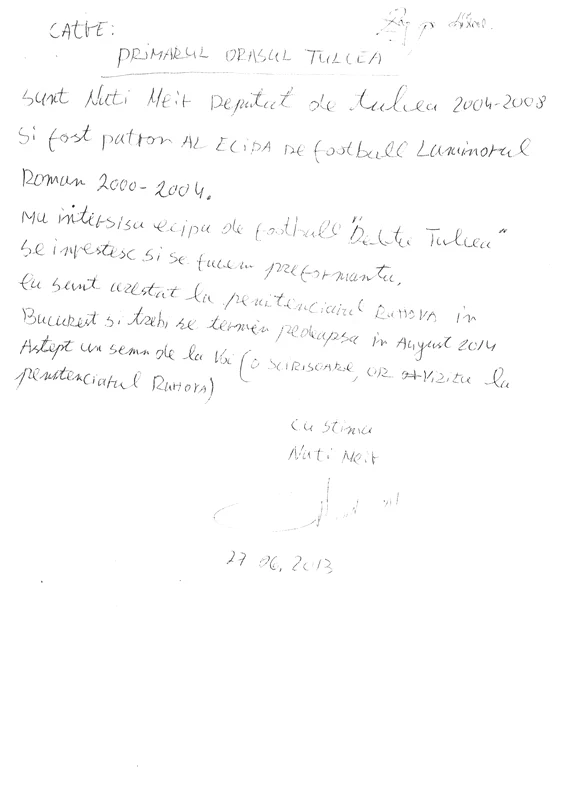 CATRE:
PRIMARUL ORASUL TULCEA
sunt Nati Meir Deputat de tulcea 2004-2008
si fost patron AL ECIPA DE football Laminorul
Roman 2000-2004.
Ma intersisa ecipa de football "Delta Tulcea"
se investesc si se facem preformanta.
Eu sunt arestat la penitenciarul RAHOVA in
Bucurest si trebi se termin pedeapsa in August 2014
Astept un semn de la Voi (o SCIRISOARE, OR VIZITA la
penitenciarul RAHOVA)
Cu stima
Nati Meir
27 06, 2013